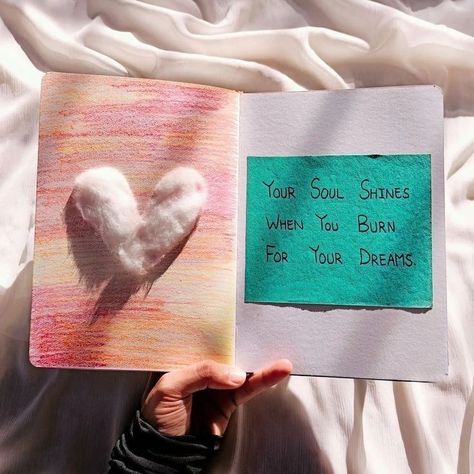 Your Soul Shines
When You Burn
For Your Dreams.